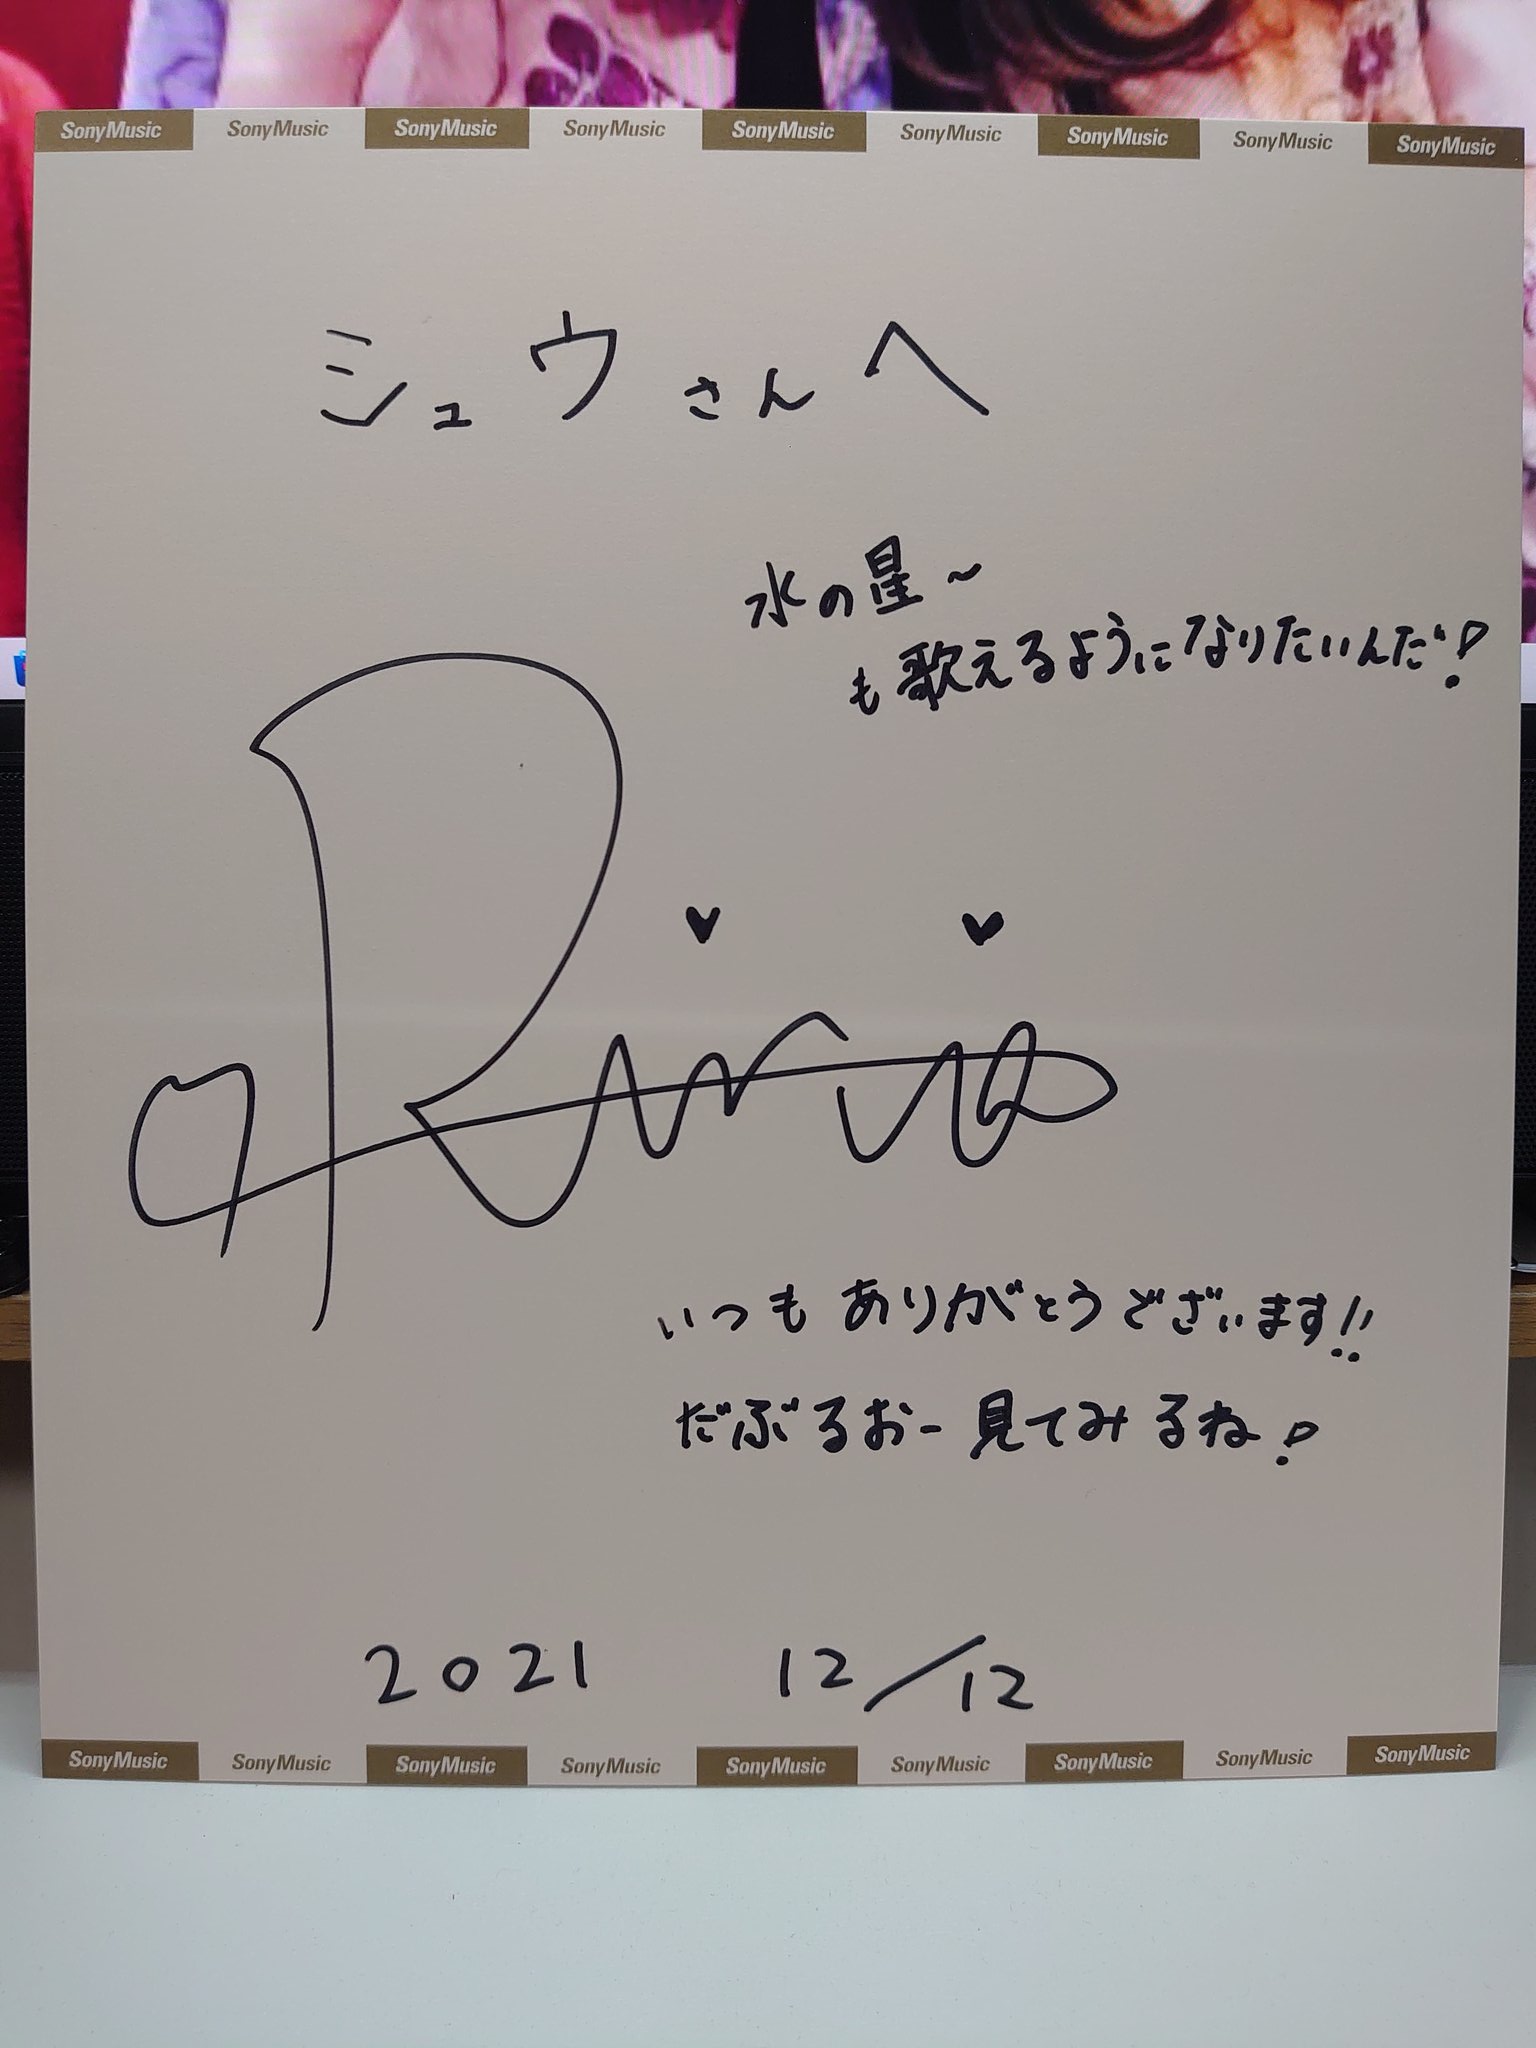 SonyMusic SonyMusic SonyMusic SonyMusic SonyMusic SonyMusic SonyMusic SonyMusic SonyMusic
シュウさんへ
水の星〜
も歌えるようになりたいんだ!
いつもありがとうございます!!
だぶるおー見てみるね!
2021 12/12
SonyMusic SonyMusic SonyMusic SonyMusic SonyMusic SonyMusic SonyMusic SonyMusic SonyMusic